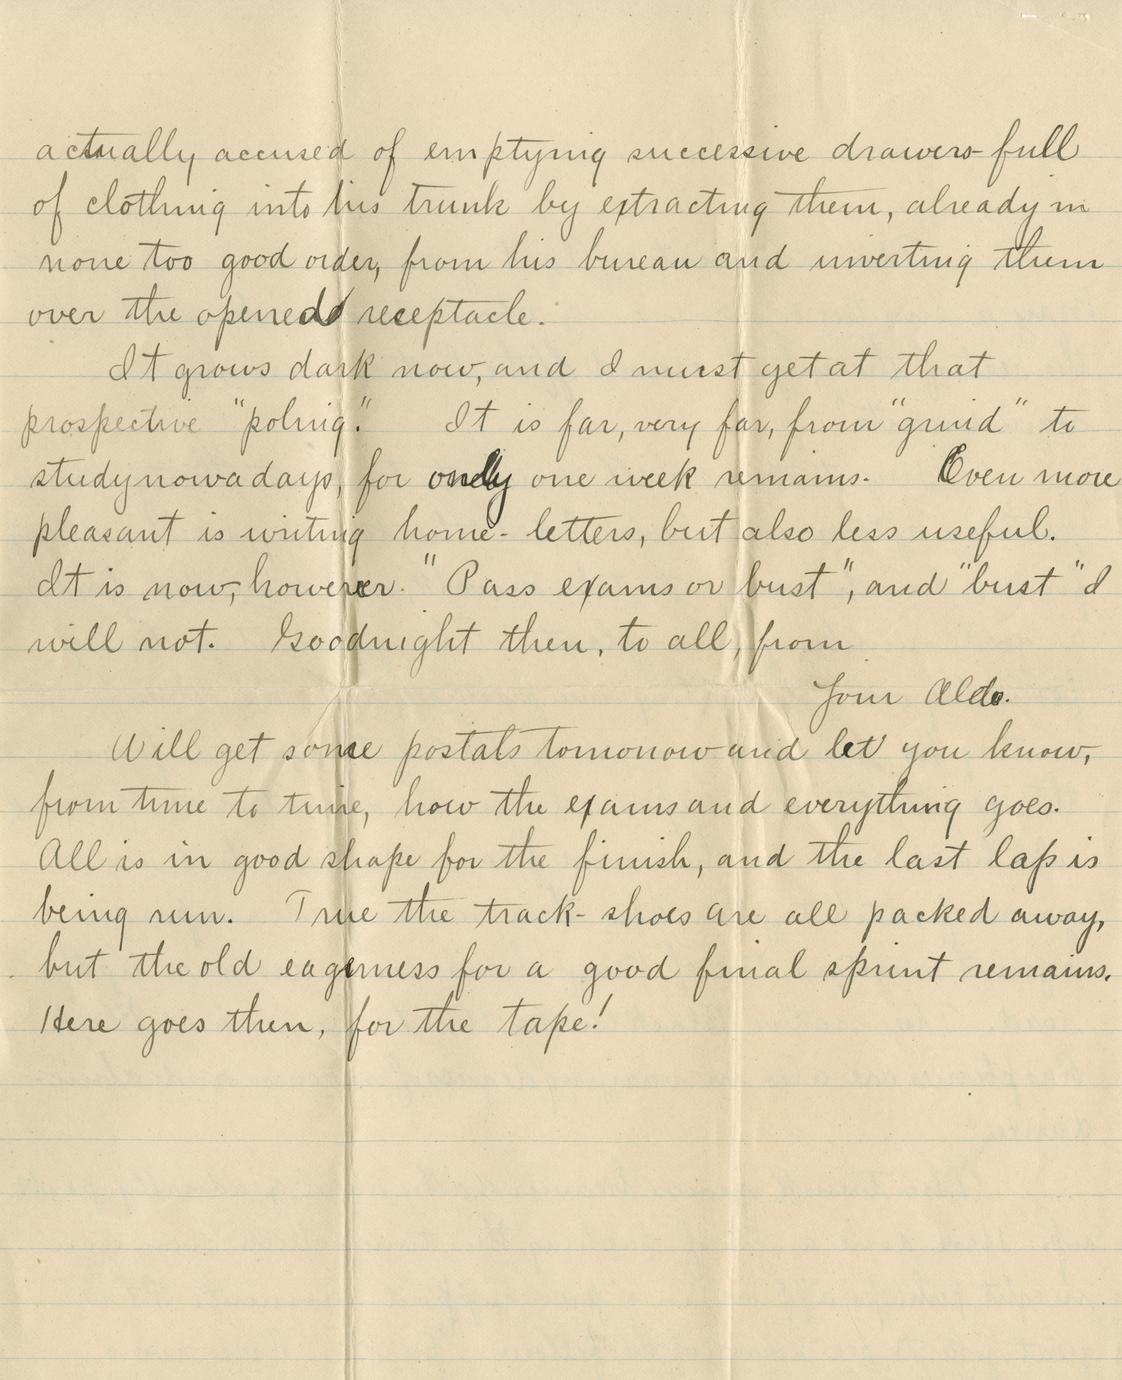 actually accused of emptying successive drawers-full
of clothing into his trunk by extracting them, already in
none too good order, from his bureau and inverting them
over the opened receptacle.
It grows dark now, and I must get at that
prospective "poling". It is far, very far, from "grind" to
study nowadays, for only one week remains. Even more
pleasant is writing home-letters, but also less useful.
It is now, however. "Pass exams or bust", and "bust" I
will not. Goodnight then, to all, from
Your Aldo.
Will get some postals tomorrow and let you know,
from time to time, how the exams and everything goes.
All is in good shape for the finish, and the last lap is
being run. True the track-shoes are all packed away,
but the old eagerness for a good final sprint remains.
Here goes then, for the tape!